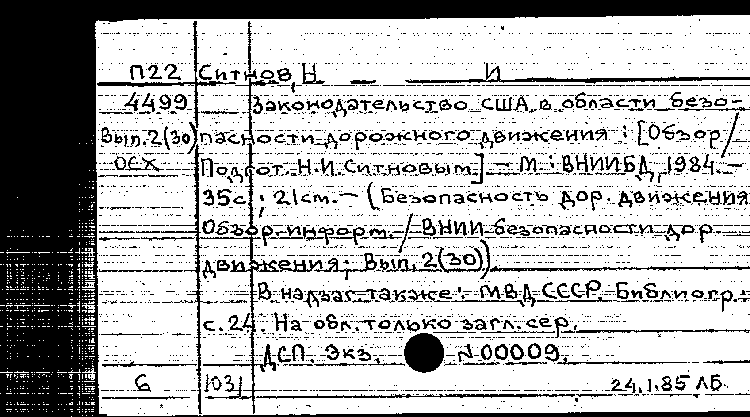 П22 Ситнов, Н И
4499 Законодательство США в области безо-
Вып.2(30) пасности дорожного движения : [Обзор /
ОСХ Подгот. Н.И. Ситновым]. - М : ВНИИБД, 1984. -
35с ; 21см. - (Безопасность дор. движения
Обзор. информ. / ВНИИ безопасности дор
движения; Вып. 2(30))
В надзаг. также: МВД СССР. Библиогр.:
с.24. На обл. только загл. сер.
ДСП. Экз. N00009.
6 1031 24.1.85 ЛБ